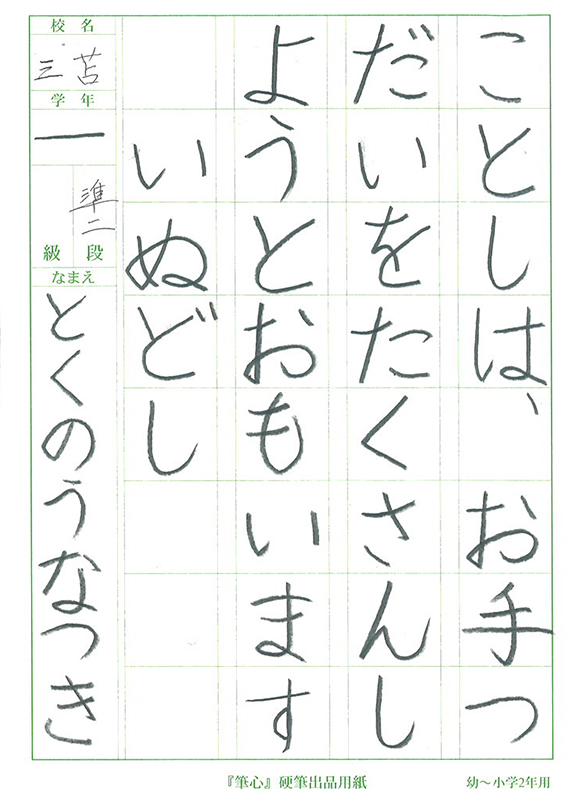 ことしは、お手つ
だいをたくさんし
ようとおもいます
いぬどし
校名
三苫
学年
一
準二
級段
なまえ
とくのうなつき
『筆心』硬筆出品用紙
幼～小学2年用